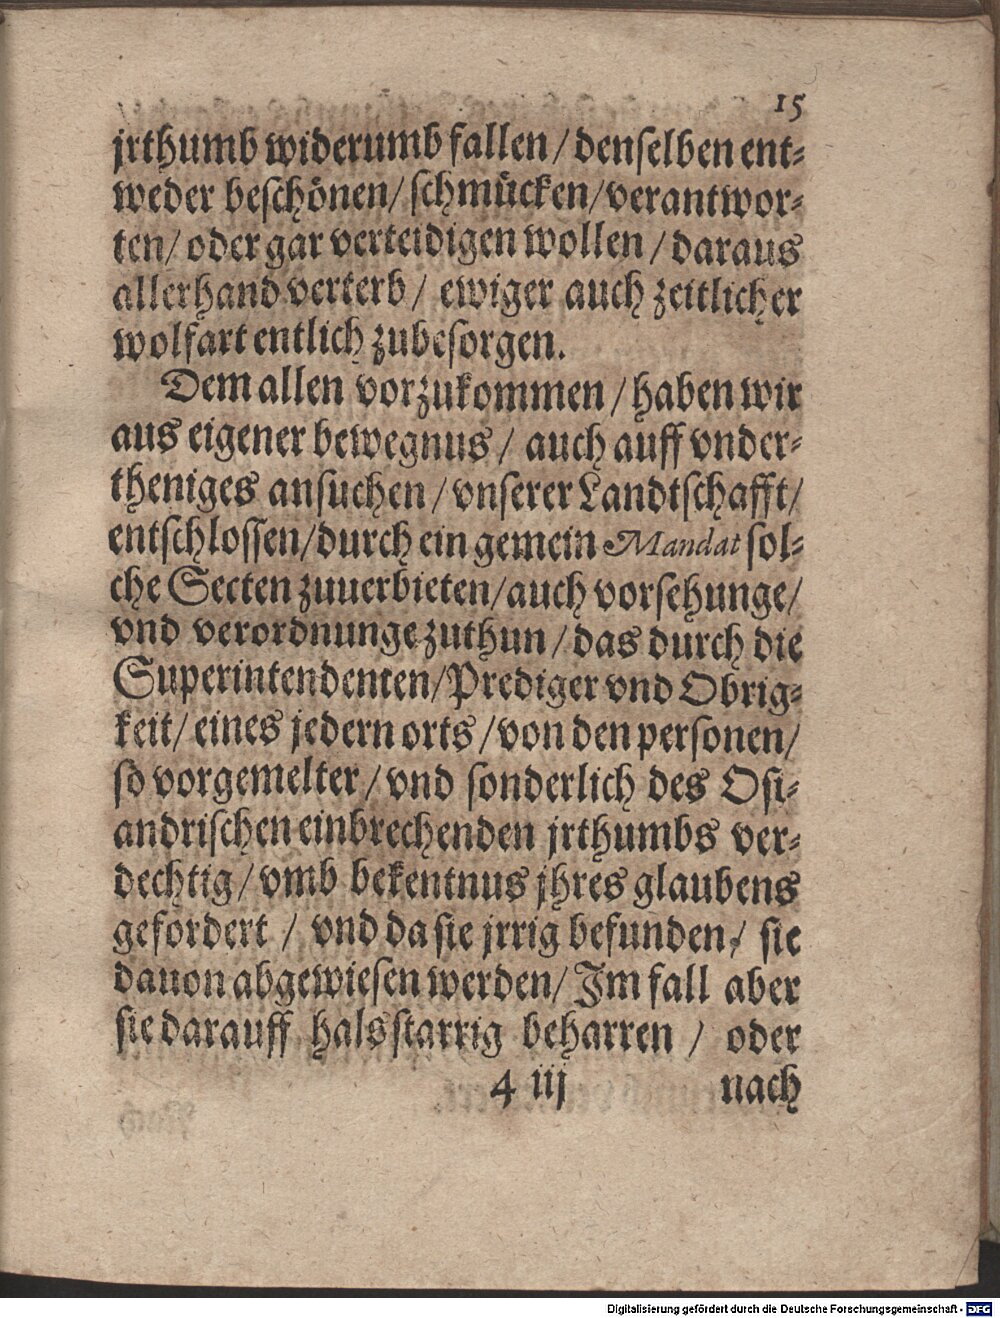 15
jrthumb widerumb fallen / denſelben ent⸗
weder beſchönen / ſchmücken / verantwor⸗
ten / oder gar verteidigen wollen / daraus
allerhand verterb / ewiger auch zeitlicher
wolfart entlich zubeſorgen.
Dem allen vorzukommen / haben wir
aus eigener bewegnus / auch auff vnder⸗
theniges anſuchen / vnſerer Landtſchafft /
entſchloſſen / durch ein gemein Mandat ſol⸗
che Secten zuuerbieten / auch vorſehunge /
vnd verordnunge zuthun / das durch die
Superintendenten / Prediger vnd Obrig⸗
keit / eines jedern orts / von den perſonen /
ſo vorgemelter / vnd ſonderlich des Oſi⸗
andriſchen einbrechenden jrthumbs ver⸗
dechtig / vmb bekentnus jhres glaubens
gefordert / vnd da ſie jrrig befunden / ſie
dauon abgewieſen werden / Im fall aber
ſie darauff halsſtarrig beharren / oder
4 iij nach
Digitalisierung gefördert durch die Deutsche Forschungsgemeinschaft - DFG